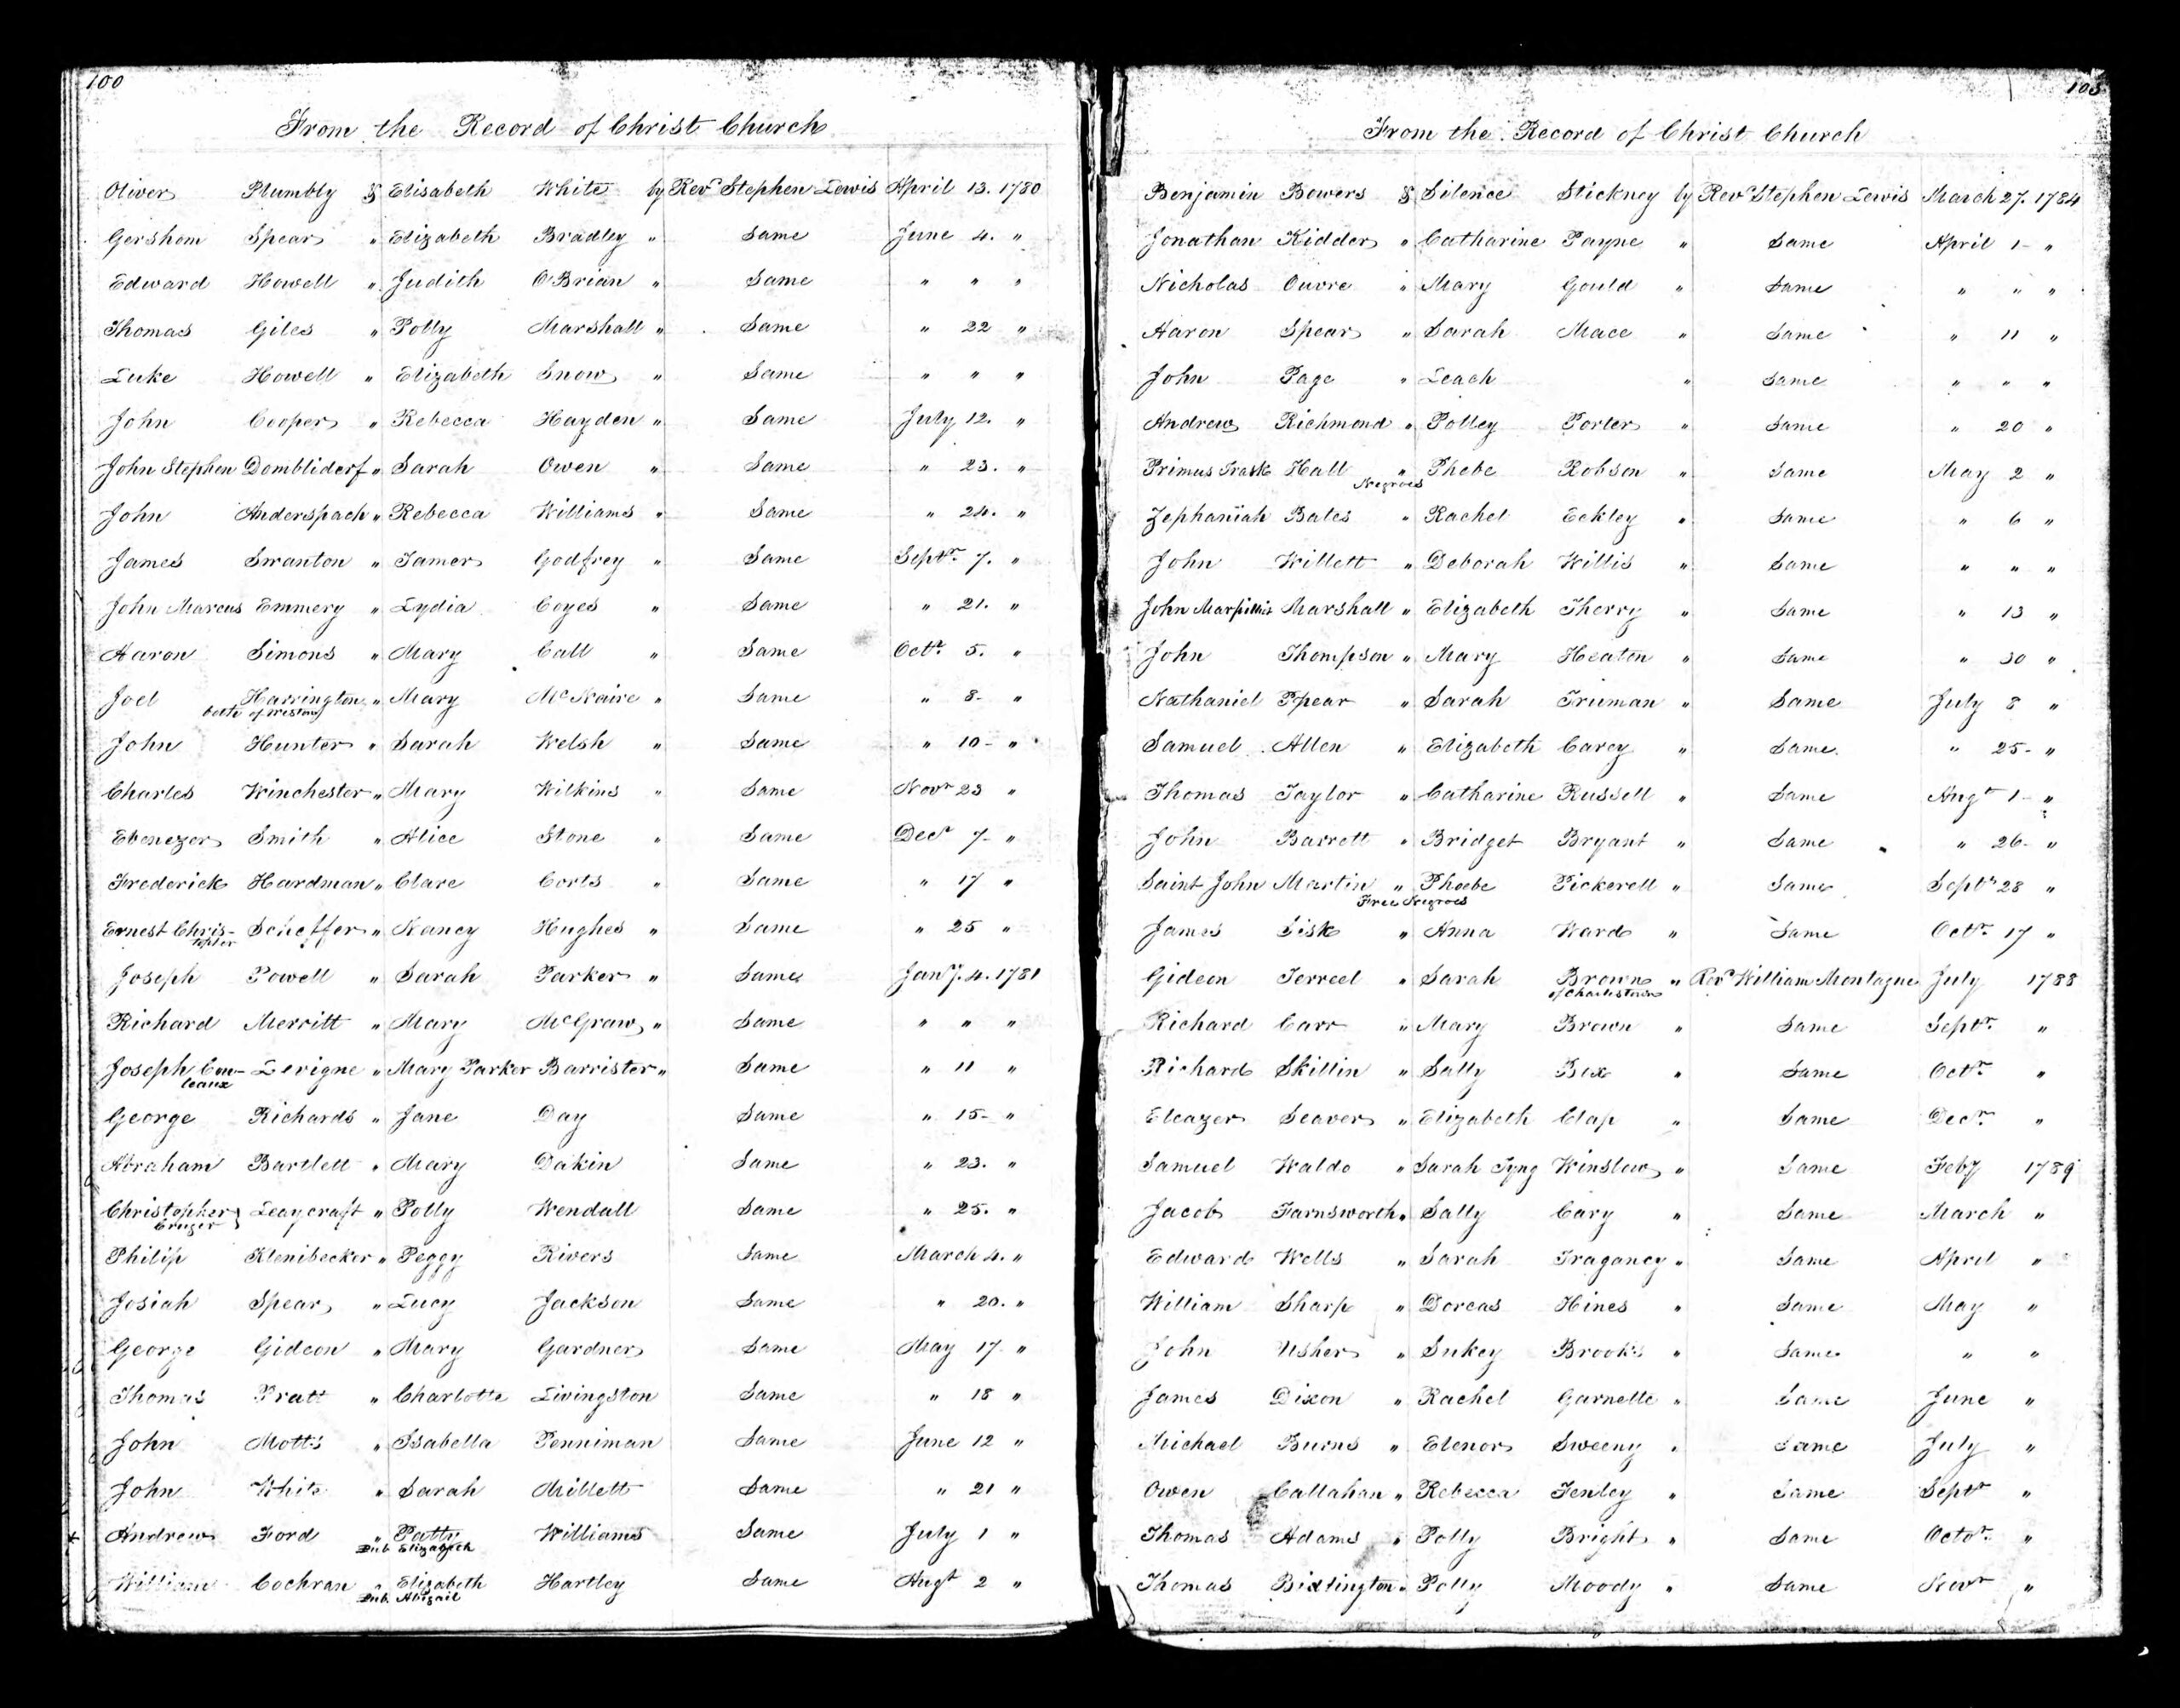 100
From the Record of Christ Church
Oliver Plumbly & Elisabeth White by Revd Stephen Lewis April 13. 1780
Gershom Spear " Elizabeth Bradley " Same June 4. "
Edward Howell " Judith O'Brian " Same " " "
Thomas Giles " Polly Marshall " Same " 22 "
Luke Howell " Elizabeth Snow " Same " " "
John Cooper " Rebecca Hayden " Same July 12. "
John Stephen Dombliderf " Sarah Owen " Same " 23. "
John Anderspach " Rebecca Williams " Same " 24. "
James Swanton " Tamer Godfrey " Same Septr 7. "
John Marcus Emmery " Lydia Coyes " Same " 21. "
Aaron Simons " Mary Call " Same Octr 5. "
Joel Harrington " Mary McNaire " Same " 8- "
both of Weston
John Hunter " Sarah Welsh " Same " 10- "
Charles Winchester " Mary Wilkins " Same Novr 23 "
Ebenezer Smith " Alice Stone " Same Decr 7- "
Frederick Hardman " Clare Corts " Same " 17 "
Ernest Chris- Scheffer " Nancy Hughes " Same " 25 "
topher
Joseph Powell " Sarah Parker " Same Jany. 4. 1781
Richard Merritt " Mary McGraw " Same " " "
Joseph Cou- Levigne " Mary Parker Barrister " Same " 11 "
leaux
George Richards " Jane Day Same " 15- "
Abraham Bartlett " Mary Dakin Same " 23. "
Christopher Leaycraft " Polly Wendall Same " 25. "
Cruger
Philip Klenibecker " Peggy Rivers Same March 4. "
Josiah Spear " Lucy Jackson Same " 20. "
George Gideon " Mary Gardner Same May 17 "
Thomas Pratt " Charlotte Livingston Same " 18 "
John Motts " Isabella Penniman Same June 12 "
John White " Sarah Millett Same " 21 "
* Andrew Ford " Patty Williams Same July 1 "
Pub. Elizabeth
William Cochran " Elizabeth Hartley Same Augt 2 "
Pub. Abigail
103
From the Record of Christ Church
Benjamin Bowers & Silence Stickney by Revd Stephen Lewis March 27. 1784
Jonathan Kidder " Catharine Payne " Same April 1- "
Nicholas Ouvre " Mary Gould " Same " " "
Aaron Spear " Sarah Mace " Same " 11 "
John Page " Leach " Same " " "
Andrew Richmond " Polley Porter " Same " 20 "
Primus Trask Hall " Phebe Robson " Same May 2 "
Negroes
Zephaniah Bates " Rachel Eckley " Same " 6 "
John Willett " Deborah Willis " Same " " "
John Marshall " Elizabeth Therry " Same " 13 "
John Thompson " Mary Heaton " Same " 30 "
Nathaniel Spear " Sarah Truman " Same July 8 "
Samuel Allen " Elizabeth Carey " Same " 25- "
Thomas Taylor " Catharine Russell " Same Augt 1- "
John Barrett " Bridget Bryant " Same " 26- "
Saint John Martin " Phoebe Pickerell " Same Septr 28 "
Free Negroes
James Sisk " Anna Ward " Same Octr 17 "
Gideon Terreel " Sarah Brown " Revd William Montague July 1788
of Charlestown
Richard Carr " Mary Brown " Same Septr "
Richard Skillin " Sally Bix " Same Octr "
Eleazer Seaver " Elizabeth Clap " Same Decr "
Samuel Waldo " Sarah Tyng Winslow " Same Feby 1789
Jacob Farnsworth " Sally Cary " Same March "
Edward Wells " Sarah Fragancy " Same April "
William Sharp " Dorcas Hines " Same May "
John Usher " Sukey Brooks " Same " "
James Dixon " Rachel Garnette " Same June "
Michael Burns " Elenor Sweeny " Same July "
Owen Callahan " Rebecca Tenley " Same Septr "
Thomas Adams " Polly Bright " Same Octor "
Thomas Bidlington " Polly Moody " Same Novr "